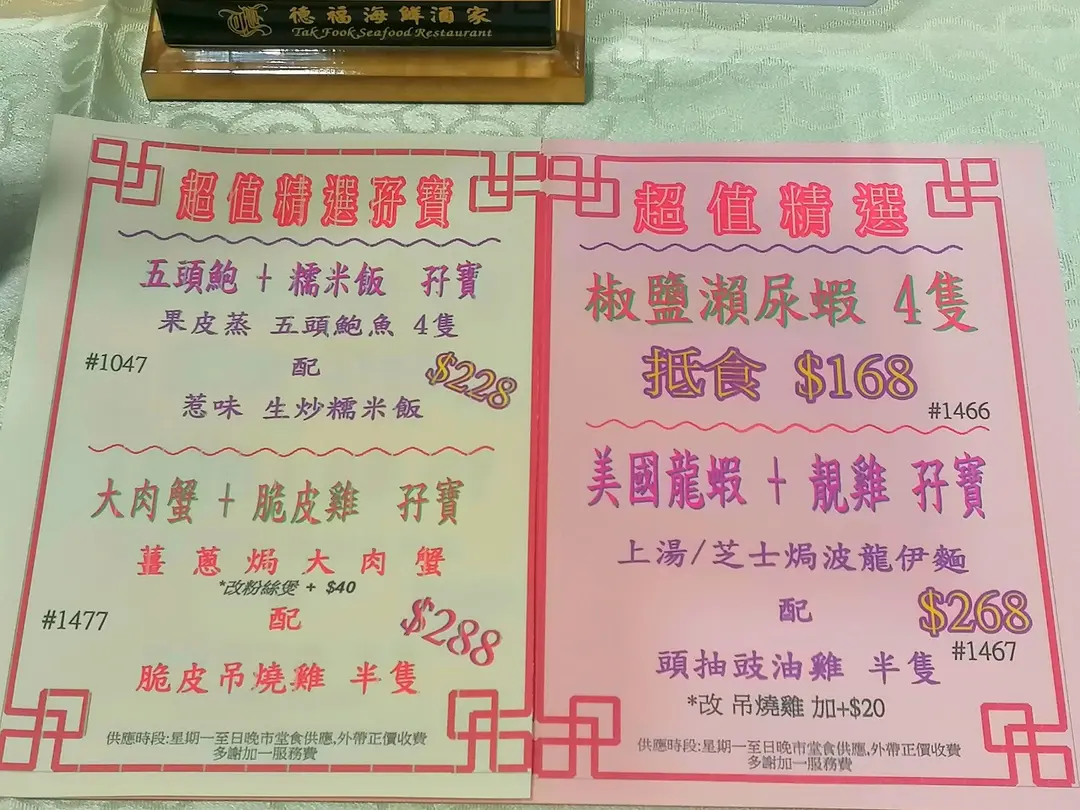 德福海鮮酒家
Tak Fook Seafood Restaurant
超值精選孖寶
五頭鮑 + 糯米飯 孖寶
果皮蒸 五頭鮑魚 4隻
#1047
配
$228
惹味 生炒糯米飯
大肉蟹 + 脆皮雞 孖寶
薑蔥焗大肉蟹
*改粉絲煲 + $40
#1477
配
$288
脆皮吊燒雞 半隻
供應時段:星期一至日晚市堂食供應,外帶正價收費
多謝加一服務費
超值精選
椒鹽瀨尿蝦 4隻
抵食 $168
#1466
美國龍蝦 + 靚雞 孖寶
上湯/芝士焗波龍伊麵
配
$268
#1467
頭抽豉油雞 半隻
*改 吊燒雞 加+$20
供應時段:星期一至日晚市堂食供應,外帶正價收費
多謝加一服務費